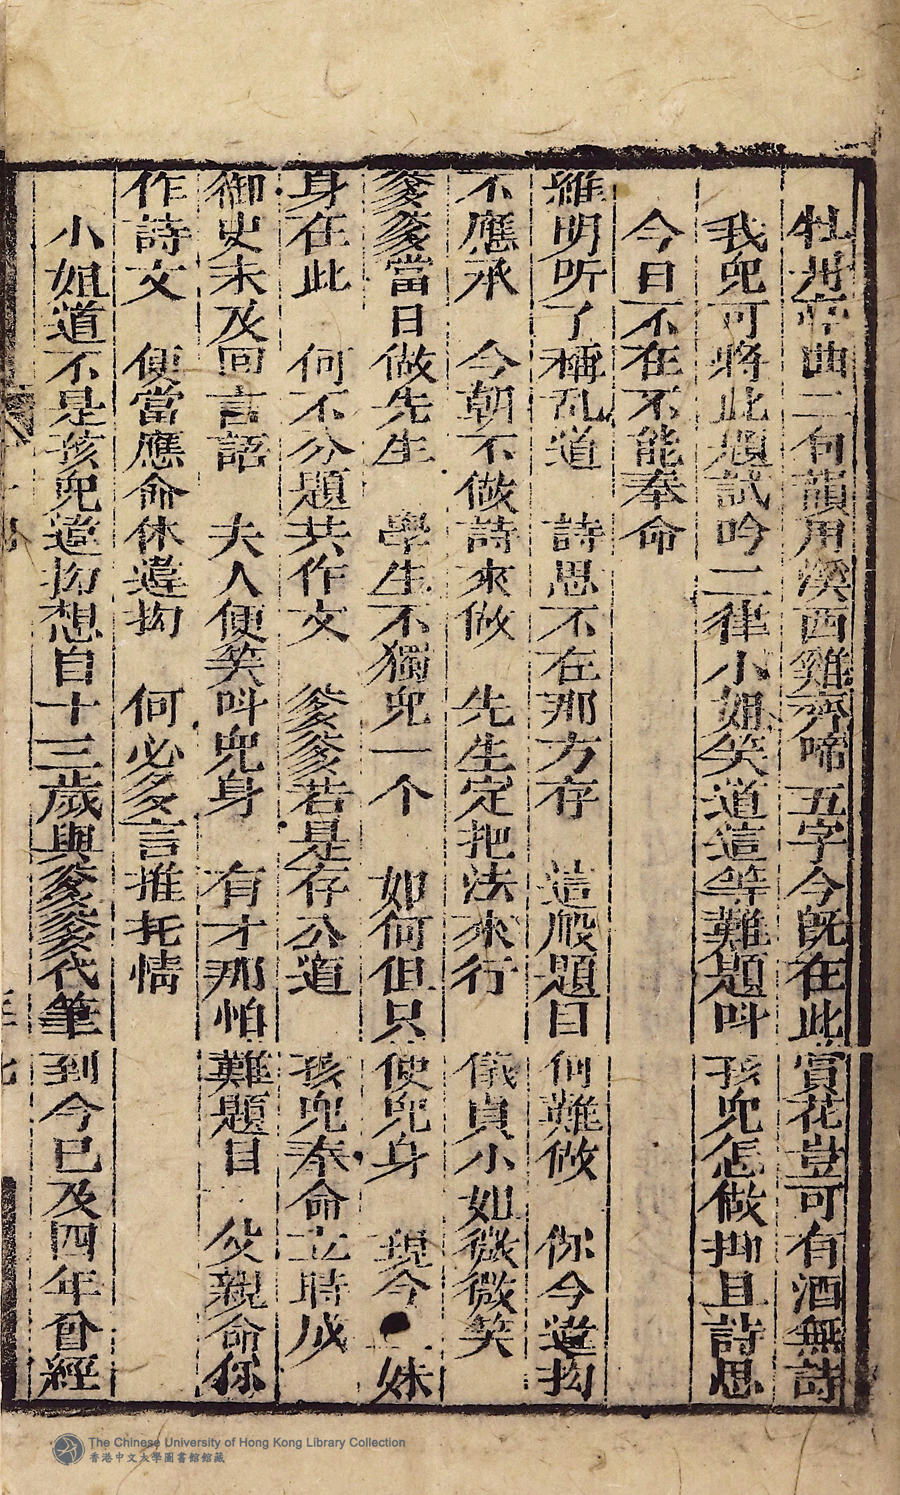 牡丹亭曲二句韻用溪西雞齊啼五字今既在此賞花豈可有酒無詩
我兒可將此題試吟二律小姐笑道這等難題呌孩兒怎做抑且詩思
今日不在不能奉命
維明听了稱乱道　詩思不在那方存　這般題目何難做　你今違拗
不應承　今朝不做詩來做　先生定把法來行　儀貞小姐微微笑
爹爹當日做先生　學生不獨兒一个　如何但只使兒身　現今　姊妹
身在此　何不分題共作文　爹爹若是存公道　孩兒奉命立時成
御史未及回言語　夫人便笑呌兒身　有才那怕難題目　父親命你
作詩文　便當應命休違拗　何必多言推托情
小姐道不是孩兒違拗想自十三歲與爹爹代筆到今已及四年曾經
The Chinese University of Hong Kong Library Collection
香港中文大學圖書館館藏